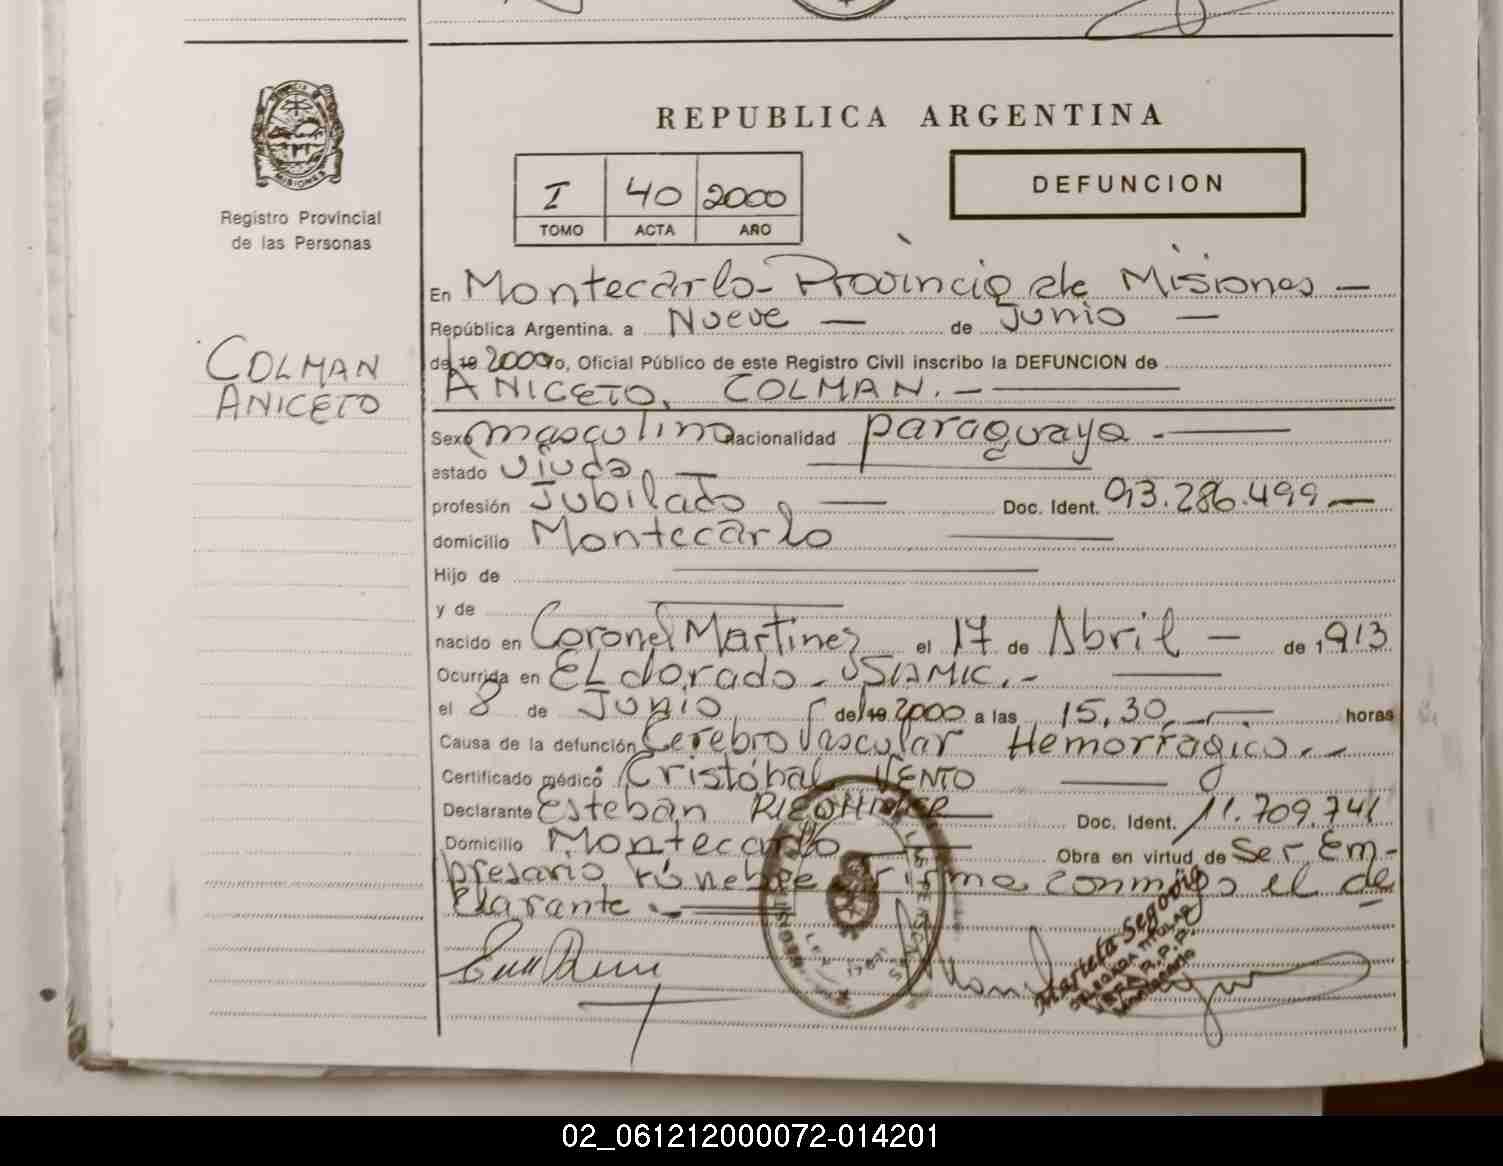 REPUBLICA ARGENTINA
PROVINCIA MISIONES
Registro Provincial
de las Personas
I 40 2000
TOMO ACTA AÑO
DEFUNCION
COLMAN
ANICETO
En Montecarlo - Provincia de Misiones —
República Argentina. a Nueve — de Junio —
del 19 2000 yo, Oficial Público de este Registro Civil inscribo la DEFUNCION de
ANICETO, COLMAN. —
Sexo masculino Nacionalidad paraguaya -
estado viudo, —
profesión Jubilado — Doc. Ident. 93.286.499 —
domicilio Montecarlo
Hijo de
y de
nacido en Coronel Martinez el 17 de Abril — de 1.913
Ocurrida en ELdorado - SAMIC. -
el 8 de Junio del 19 2000 a las 15,30, horas
Causa de la defunción Cerebro Vascular Hemorragico. -
Certificado médico Cristóbal VENTO
Declarante Esteban Doc. Ident. 11.709.741
Domicilio Montecarlo Obra en virtud de Ser Em-
presario Fúnebre Firma conmigo el de
clarante. -
Marteta Segovia
02_061212000072-014201